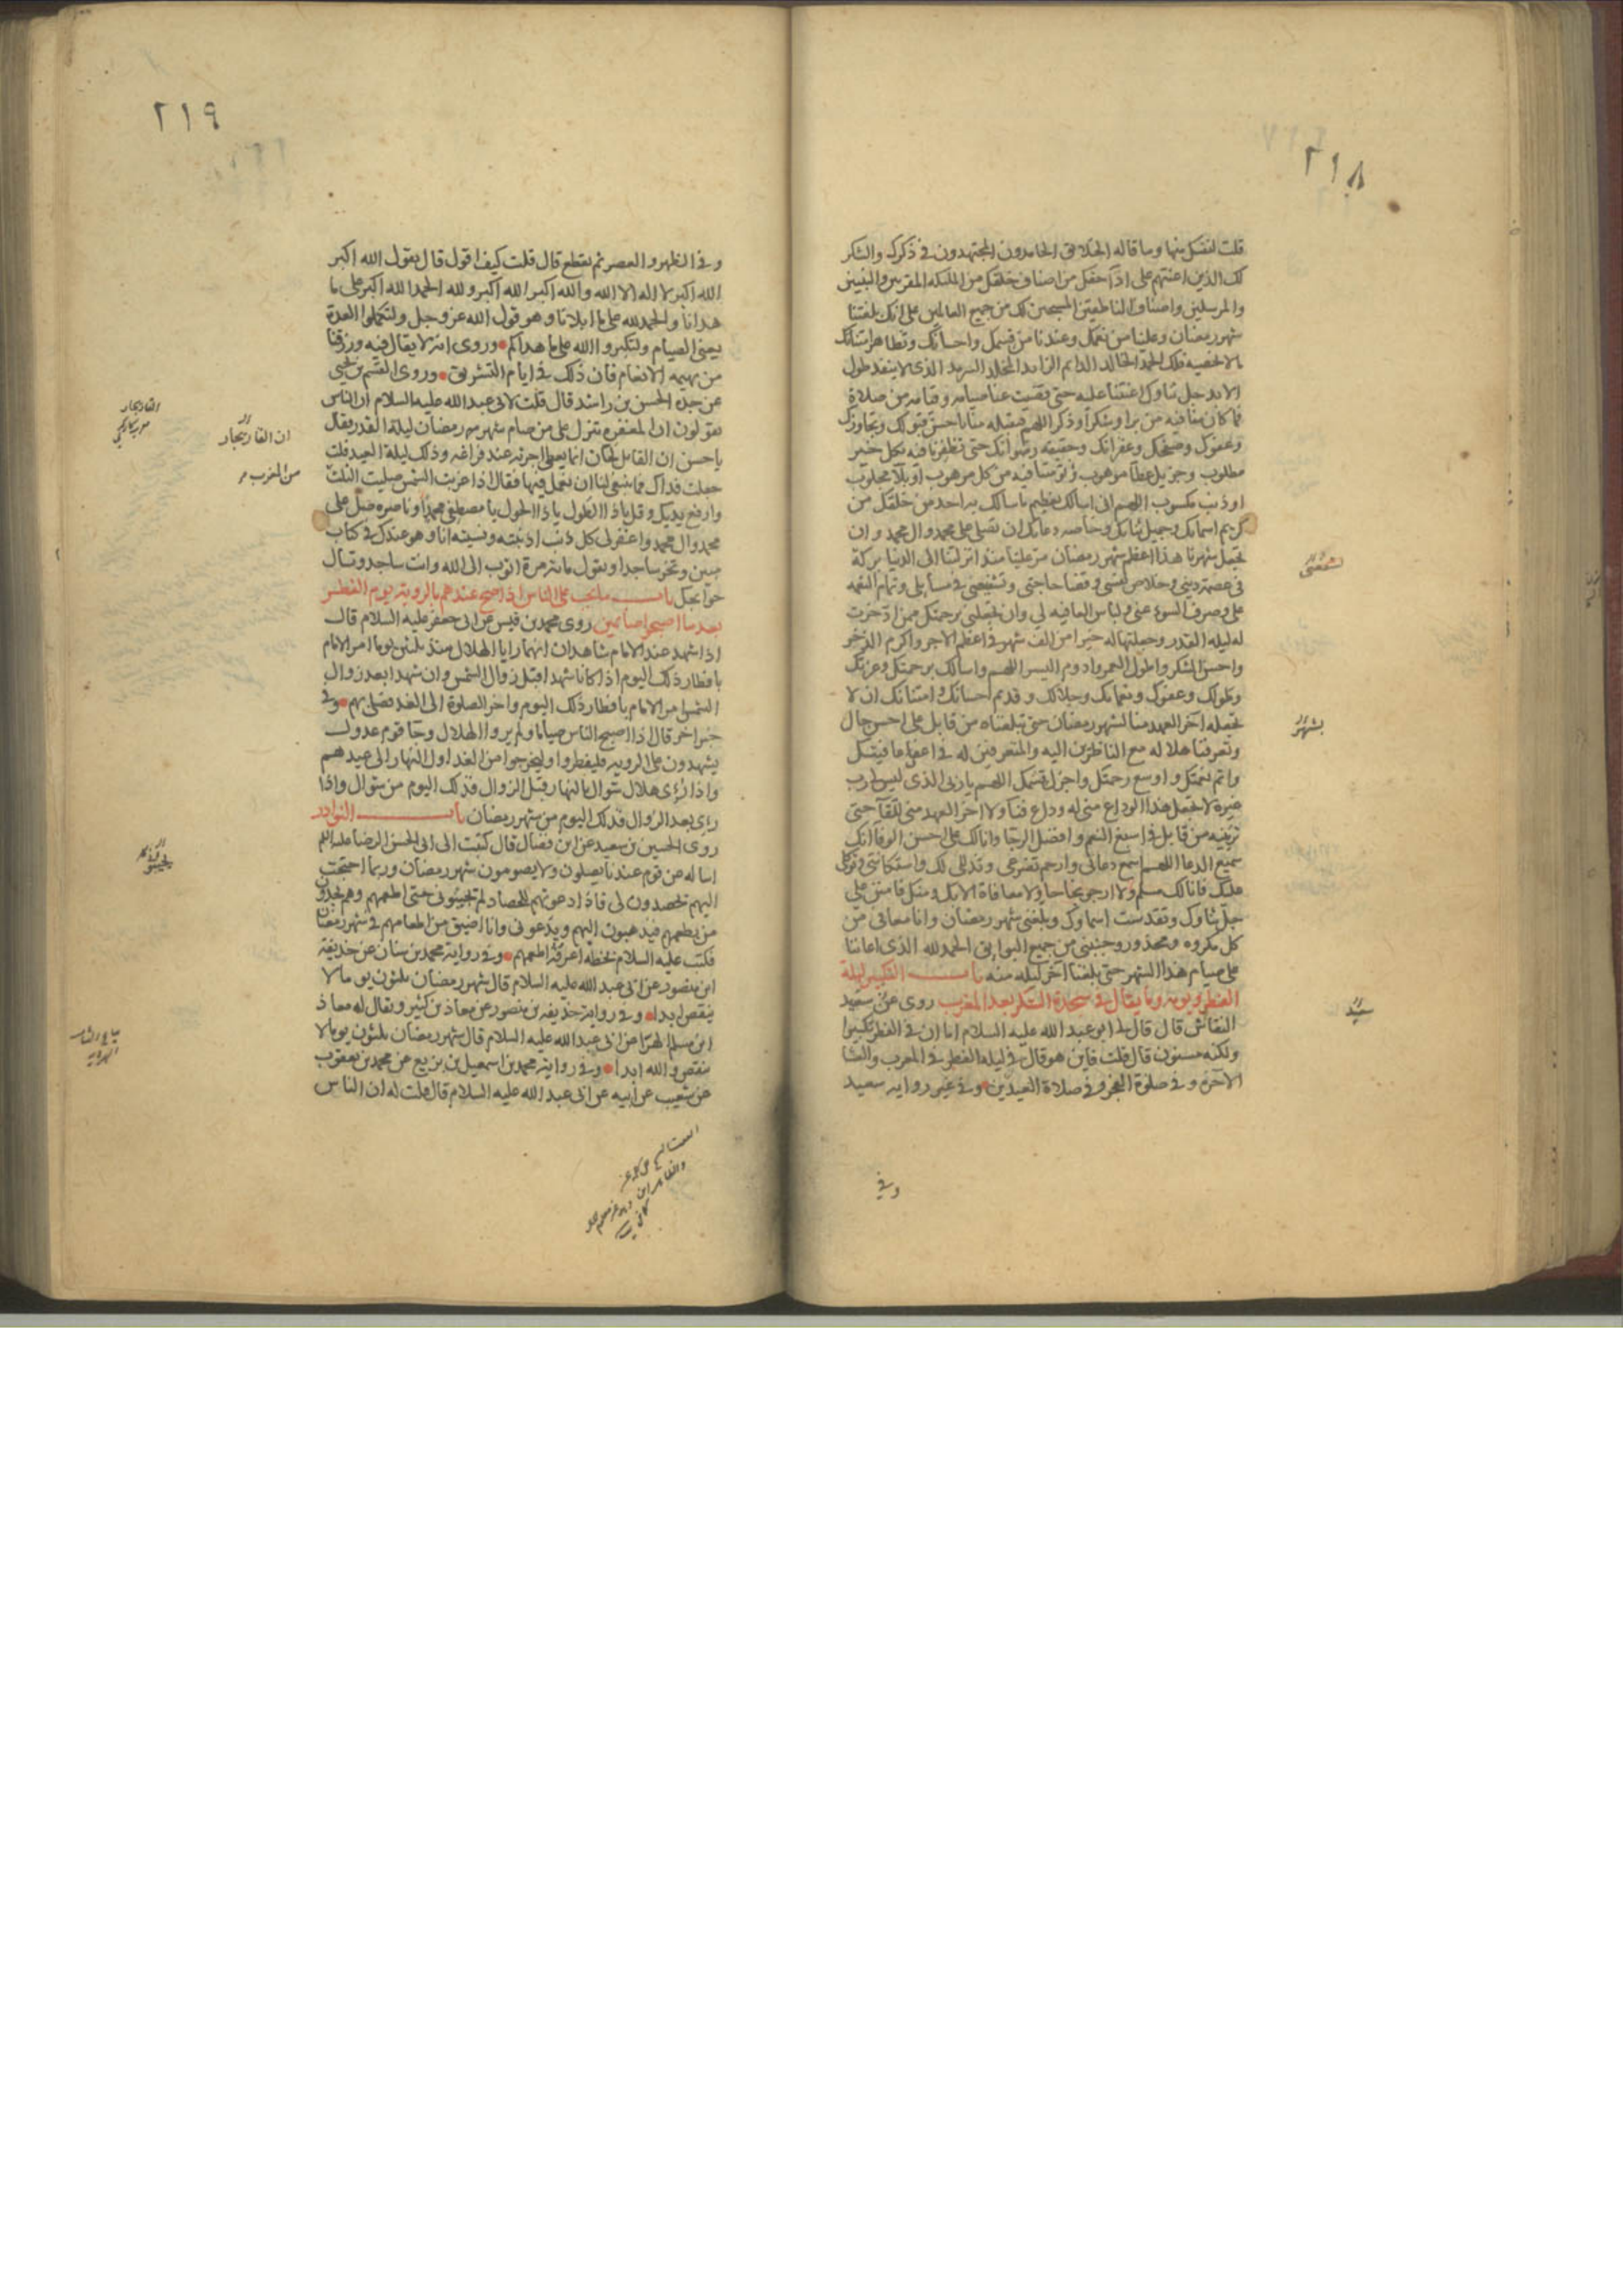 ٢١٨
قلت لنفسك منها وما قاله الخلائق الحامدون المجتهدون في ذكرك والشكر
لك الذين اعنتهم على اداء حقك من اصناف خلقك من الملئكة المقربين والنبيين
والمرسلين واصناف الناطقين المسبحين لك من جميع العالمين على انك بلغتنا
شهر رمضان وعلينا من نعمك وعندنا من قسمك واحسانك وتظاهر امتنانك
ما لا نحصيه فلك الحمد الخالد الدائم الزايد المخلد السرمد الذي لا ينفد طول
الابد جل ثناؤك اعنتنا عليه حتى قضيت عنا صيامه وقيامه من صلاة
فما كان منا فيه من بر او شكر او ذكر اللهم فتقبله منا باحسن قبولك وتجاوزك
وعفوك وصفحك وغفرانك وحقيقة رضوانك حتى تظفرنا فيه بكل خير
مطلوب وجزيل عطاء موهوب وتؤمننا فيه من كل مرهوب او بلاء مجلوب
او ذنب مكسوب اللهم اني اسالك بعظيم ما سالك به احد من خلقك من
كريم اسمائك وجميل ثنائك وخاصة دعائك ان تصلي على محمد وال محمد وان
تجعل شهرنا هذا اعظم شهر رمضان مر علينا منذ انزلتنا الى الدنيا بركة
في عصمة ديني وخلاص نفسي وقضاء حاجتي وتشفيعي في مسايلي وتمام النعمة
على وصرف السوء عني ولباس العافيه لي وان تجعلني برحمتك ممن ادخرت
له ليلة القدر وجعلتها له خيرا من الف شهر في اعظم الاجر واكرم الذخر
واحسن الشكر واطول العمر وادوم اليسر اللهم واسالك برحمتك وعزتك
وطولك وعفوك ونعمائك وجلالك وقديم احسانك وامتنانك ان لا
تجعله آخر العهد منا لشهر رمضان حتى تبلغناه من قابل على احسن حال
وتعرفنا هلاله مع الناظرين اليه والمتعرفين له في اعفى عافيتك
واتم نعمتك واوسع رحمتك واجزل قسمك اللهم يا ربي الذي ليس لي رب
غيره لا تجعل هذا الوداع مني له وداع فناء ولا اخر العهد مني للقاء حتى
ترينيه من قابل في اسبغ النعم وافضل الرجاء وانا لك على احسن الوفاء انك
سميع الدعاء اللهم اسمع دعائي وارحم تضرعي وتذللي لك واستكانتي وتوكلي
عليك فانا لك مسلم ولا ارجو نجاحا ولا معافاة الا بك ومنك فامنن علي
جل ثناؤك وتقدست اسماؤك وبلغني شهر رمضان وانا معافى من
كل مكروه ومحذور وجنبني من جميع البوايق الحمد لله الذي اعاننا
على صيام هذا الشهر حتى بلغنا آخر ليله منه باب التكبير ليلة
الفطر ويومه وما يقال في سجدة الشكر بعد المغرب روى عن سعيد
النقاش قال قال لي ابو عبد الله عليه السلام اما ان في الفطر تكبيرا
ولكنه مسنون قال قلت فاين هو قال في ليلة الفطر في المغرب والعشا
الآخرة وفي صلوة الفجر وفي صلاة العيدين وفي غير رواية سعيد
وفي
بشهر
سعيد
٢١٩
وفي الظهر والعصر ثم يقطع قال قلت كيف اقول قال يقول الله اكبر
الله اكبر لا اله الا الله والله اكبر الله اكبر ولله الحمد الله اكبر على ما
هدانا والحمد لله على ما ابلانا وهو قول الله عز وجل ولتكملوا العدة
يعني الصيام ولتكبروا الله على ما هداكم وروى انه لا يقال فيه ورزقنا
من بهيمه الانعام فان ذلك في ايام التشريق وروى القسم بن يحيى
عن جده الحسن بن راشد قال قلت لابي عبد الله عليه السلام ان الناس
يقولون ان المغفرة تنزل على من صام شهر رمضان ليلة القدر فقال
يا حسن ان القايل لحان انما يعطى اجرته عند فراغه وذلك ليلة العيد قلت
جعلت فداك فما ينبغي لنا ان نعمل فيها فقال اذا غربت الشمس صليت الثلث
وارفع يديك وقل يا ذا الطول يا ذا الحول يا مصطفى محمد وناصره صل على
محمد وال محمد واغفر لي كل ذنب اذنبته ونسيته انا وهو عندك في كتاب
مبين وتخر ساجدا ويقول مائة مرة اتوب الى الله وانت ساجد وتسال
حوائجك باب ما يجب على الناس اذا صح عندهم بالروية يوم الفطر
بعد ما اصبحوا صائمين روى محمد بن قيس عن ابي جعفر عليه السلام قال
اذا شهد عند الامام شاهدان انهما رايا الهلال منذ ثلثين يوما امر الامام
بافطار ذلك اليوم اذا كانا شهدا قبل زوال الشمس وان شهدا بعد زوال
الشمس امر الامام بافطار ذلك اليوم واخر الصلوة الى الغد فصلى بهم وفي
خبر اخر قال اذا اصبح الناس صياما ولم يروا الهلال وجا قوم عدول
يشهدون على الروية فليفطروا وليخرجوا من الغد اول النهار الى عيدهم
واذا رؤى هلال شوال بالنهار قبل الزوال فذلك اليوم من شوال واذا
رئي بعد الزوال فذلك اليوم من شهر رمضان باب النوادر
روى الحسين بن سعيد عن ابن فضال قال كتبت الى ابي الحسن الرضا عليه السلم
اساله عن قوم عندنا يصلون ولا يصومون شهر رمضان وربما احتجت
اليهم يحصدون لي فاذا دعوتهم للحصاد لم تجيبوني حتى اطعمهم وهم يجدون
من يطعمهم فيذهبون اليهم ويدعوني وانا اضيق من اطعامهم في شهر رمضان
فكتب عليه السلام بخطه اعرفه اطعمهم وفي رواية محمد بن سنان عن حذيفة
ابن منصور عن ابي عبد الله عليه السلام قال شهر رمضان ثلثون يوما لا
ينقص ابدا وفي رواية حذيفه بن منصور عن معاذ بن كثير ويقال له معاذ
ابن مسلم الهرا عن ابي عبد الله عليه السلام قال شهر رمضان ثلثون يوما لا
ينقص والله ابدا وفي رواية محمد بن اسمعيل بن بزيع عن محمد بن يعقوب
عن شعيب عن ابيه عن ابي عبد الله عليه السلام قال قلت له ان الناس
ان القاريجار
من المغرب